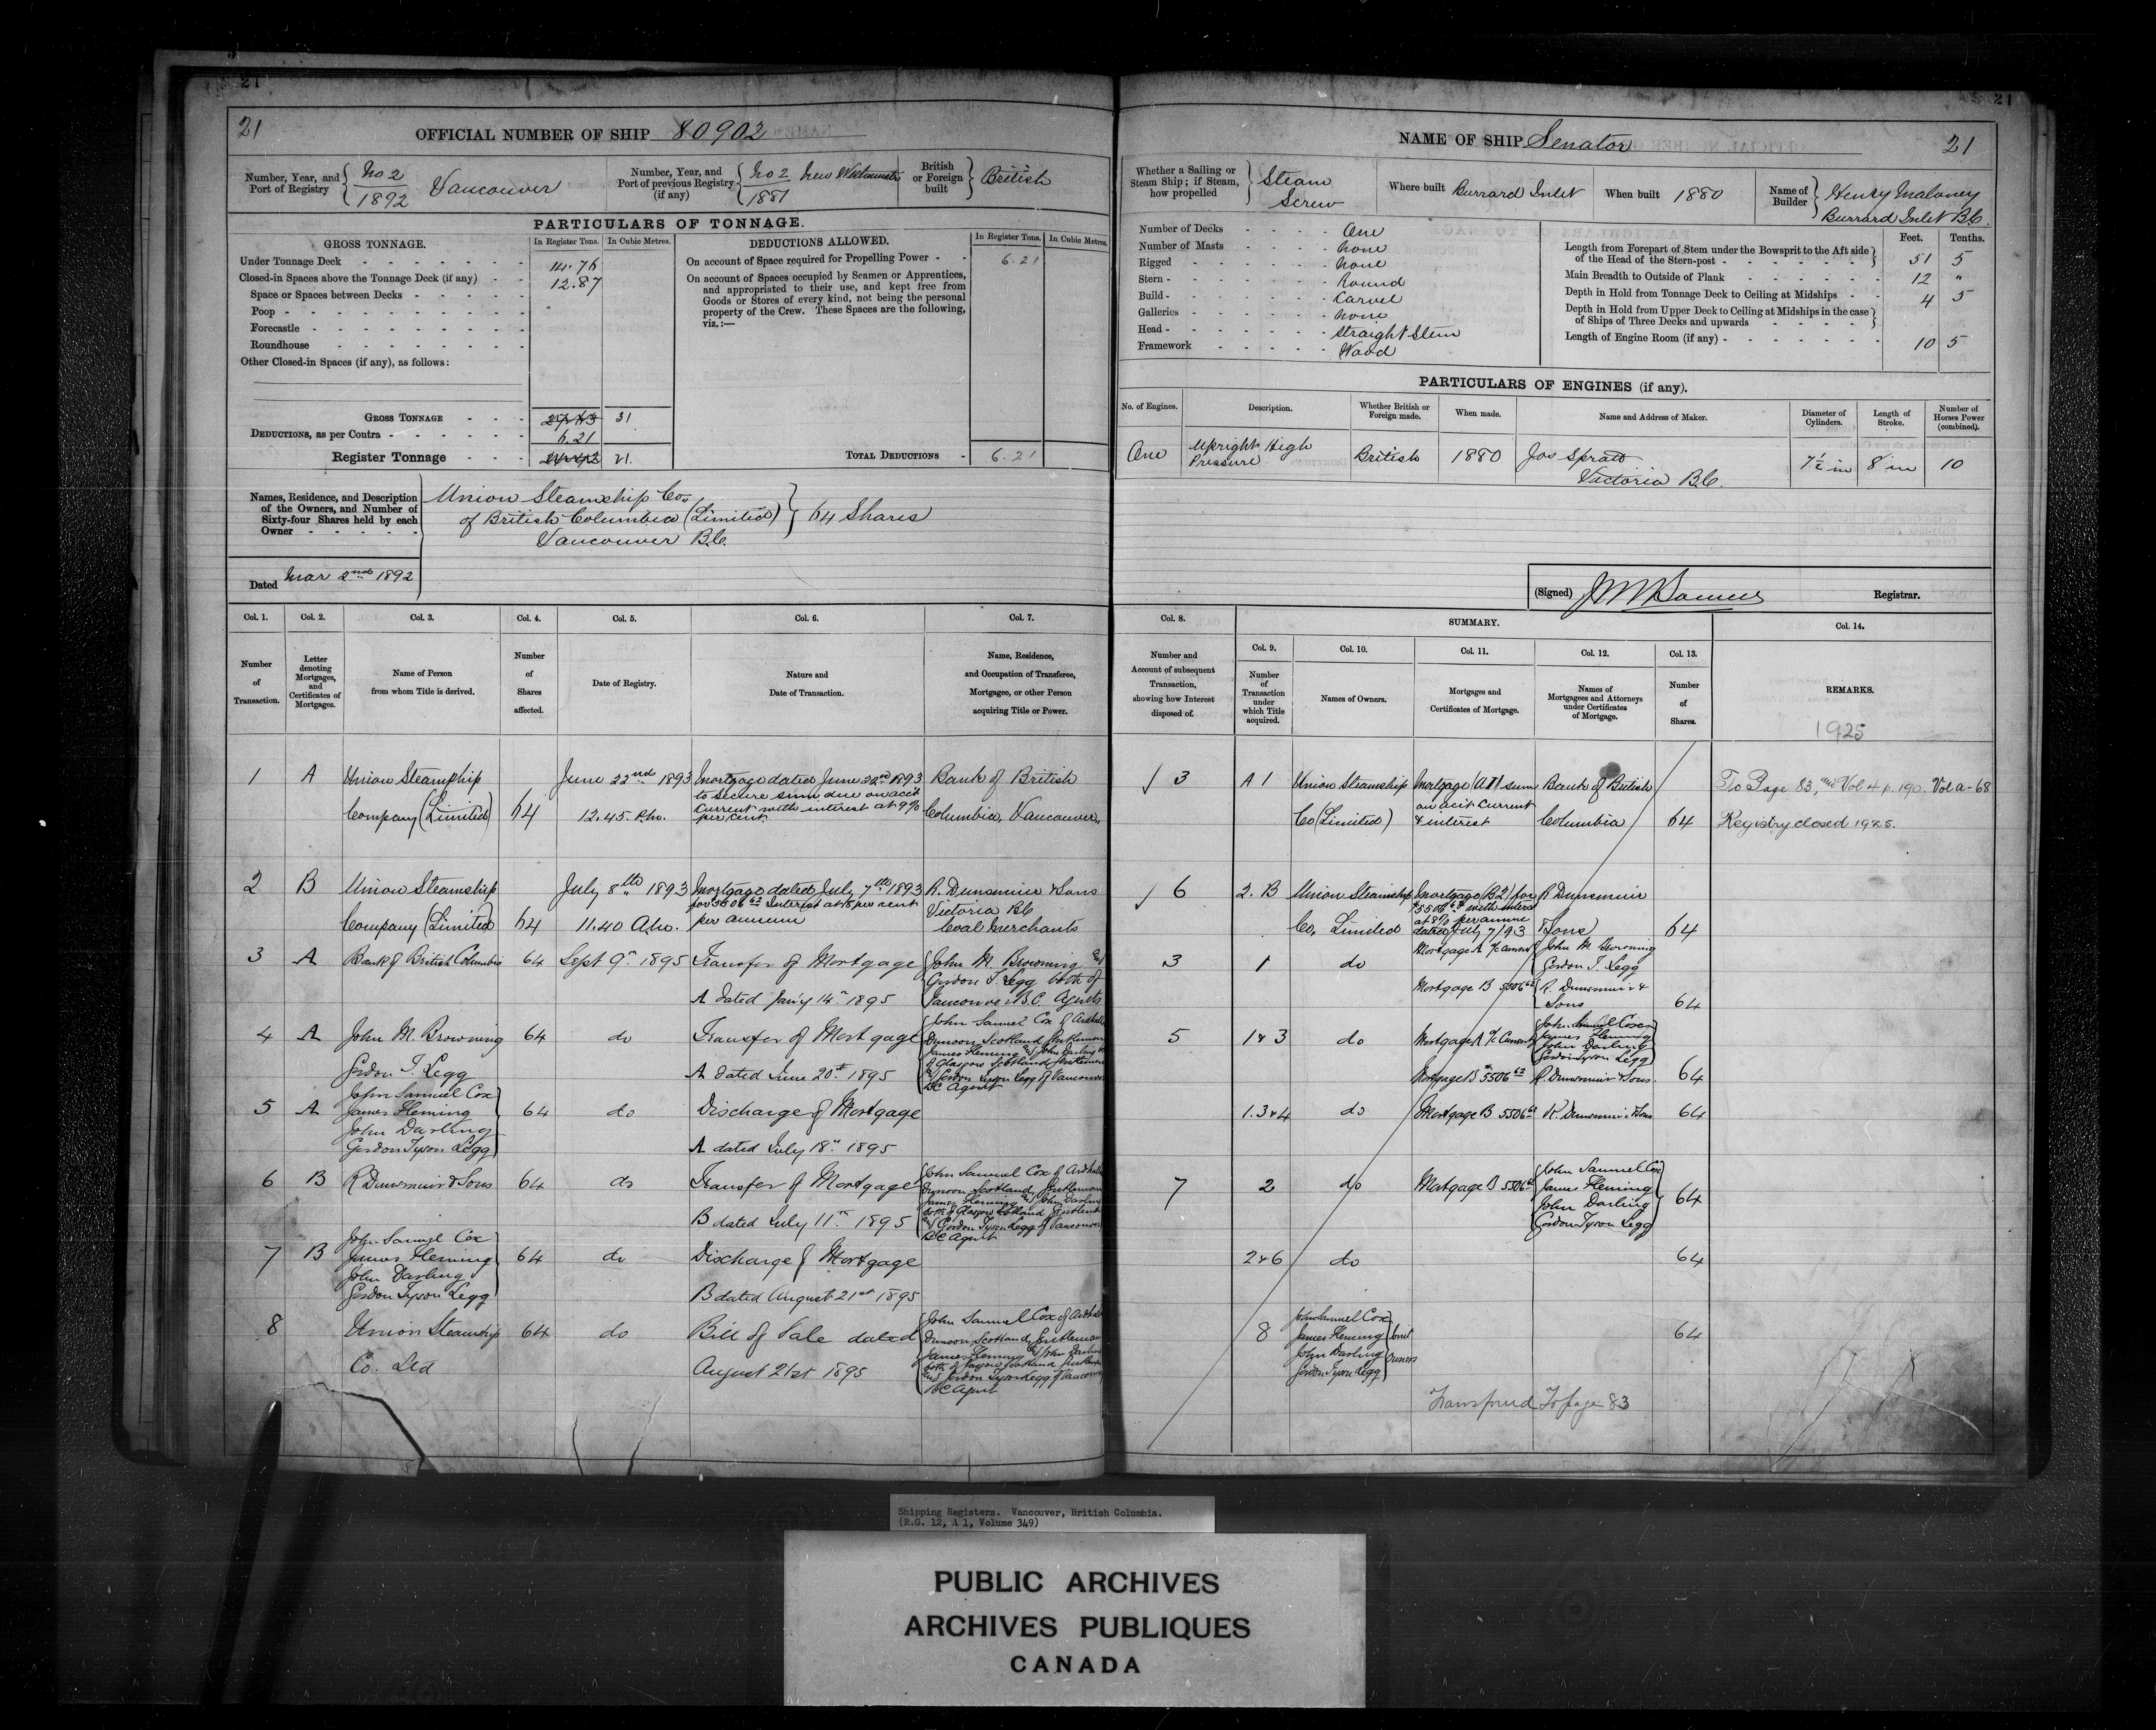 21
21
OFFICIAL NUMBER OF SHIP 80902
Number, Year, and Port of Registry { No 2 / 1892 Vancouver
Number, Year, and Port of previous Registry (if any) { No 2 / 1881 New Westminster
British or Foreign built } British
PARTICULARS OF TONNAGE.
GROSS TONNAGE. In Register Tons. In Cubic Metres.
Under Tonnage Deck 14.76
Closed-in Spaces above the Tonnage Deck (if any) 12.87
Space or Spaces between Decks
Poop
Forecastle
Roundhouse
Other Closed-in Spaces (if any), as follows:
GROSS TONNAGE 31
DEDUCTIONS, as per Contra 6.21
Register Tonnage 21.
DEDUCTIONS ALLOWED. In Register Tons. In Cubic Metres.
On account of Space required for Propelling Power 6.21
On account of Spaces occupied by Seamen or Apprentices,
and appropriated to their use, and kept free from
Goods or Stores of every kind, not being the personal
property of the Crew. These Spaces are the following,
viz.:—
TOTAL DEDUCTIONS 6.21
Names, Residence, and Description
of the Owners, and Number of
Sixty-four Shares held by each
Owner
Union Steamship Co.
of British Columbia (Limited) } 64 Shares
Vancouver B.C.
Dated Mar 2nd 1892
Col. 1. Col. 2. Col. 3. Col. 4. Col. 5. Col. 6. Col. 7.
Number of Transaction.
Letter denoting Mortgages, and Certificates of Mortgages.
Name of Person from whom Title is derived.
Number of Shares affected.
Date of Registry.
Nature and Date of Transaction.
Name, Residence, and Occupation of Transferee, Mortgagee, or other Person acquiring Title or Power.
1 A Union Steamship June 22nd 1893 Mortgage dated June 22nd 1893 Bank of British
to secure sum due on acct
Company (Limited) 64 12.45. P.m. Current with interest at 9% Columbia, Vancouver.
per cent
2 B Union Steamship July 8th 1893 Mortgage dated July 7th 1893 R. Dunsmuir & Sons
for 5506 62 Interest at 8 per cent Victoria B.C
Company (Limited) 64 11.40 A.m. per annum Coal Merchants
3 A Bank of British Columbia 64 Sept 9th 1895 Transfer of Mortgage {John M. Browning and
Gordon T. Legg both of
A dated Jan'y 14th 1895 Vancouver B.C. Agents
4 A John M. Browning 64 do Transfer of Mortgage
Gordon T. Legg A dated June 20th 1895
John Samuel Cox of
Dunoon Scotland Gentleman
James Fleming and John Darling
of Glasgow Scotland Gentlemen
and Gordon Tyson Legg of Vancouver
BC Agent
5 A John Samuel Cox 64 do Discharge of Mortgage
James Fleming
John Darling
Gordon Tyson Legg A dated July 18th 1895
6 B R Dunsmuir & Sons 64 do Transfer of Mortgage
B dated July 11th 1895
John Samuel Cox of
Dunoon Scotland, Gentleman
James Fleming and John Darling
both of Glasgow Scotland Gentlemen
and Gordon Tyson Legg of Vancouver
BC Agent
7 B John Samuel Cox 64 do Discharge of Mortgage
James Fleming
John Darling
Gordon Tyson Legg B dated August 21st 1895
8 Union Steamship 64 do Bill of Sale dated
Co. Ltd August 21st 1895
John Samuel Cox of
Dunoon Scotland, Gentleman
James Fleming and John Darling
both of Glasgow Scotland
and Gordon Tyson Legg of Vancouver
BC Agent
21
NAME OF SHIP Senator 21
Whether a Sailing or Steam Ship; if Steam, how propelled } Steam Screw
Where built Burrard Inlet
When built 1880
Name of Builder } Henry Maloney
Burrard Inlet B.C.
Number of Decks One
Number of Masts None
Rigged None
Stern Round
Build Carvel
Galleries None
Head Straight Stem
Framework Wood
Feet. Tenths.
Length from Forepart of Stem under the Bowsprit to the Aft side of the Head of the Stern-post 51 5
Main Breadth to Outside of Plank 12 "
Depth in Hold from Tonnage Deck to Ceiling at Midships 4 5
Depth in Hold from Upper Deck to Ceiling at Midships in the case of Ships of Three Decks and upwards
Length of Engine Room (if any) 10 5
PARTICULARS OF ENGINES (if any).
No. of Engines. Description. Whether British or Foreign made. When made. Name and Address of Maker. Diameter of Cylinders. Length of Stroke. Number of Horses Power (combined).
One Upright High Pressure British 1880 Jos Spratt 7½ in 8 in 10
Victoria B.C.
(Signed) Registrar.
Col. 8. SUMMARY. Col. 14.
Col. 9. Col. 10. Col. 11. Col. 12. Col. 13.
Number and Account of subsequent Transaction, showing how Interest disposed of.
Number of Transaction under which Title acquired.
Names of Owners.
Mortgages and Certificates of Mortgage.
Names of Mortgagees and Attorneys under Certificates of Mortgage.
Number of Shares.
REMARKS.
1925
3 A 1 Union Steamship Mortgage (A1) sum Bank of British To Page 83, Vol 4 p. 190. Vol a-68
on acct Current
Co (Limited) & interest Columbia 64 Registry closed 1925.
6 2. B Union Steamship Mortgage (B2) for R Dunsmuir
$5506 62 with interest
at 8% per annum
Co, Limited dated July 7/93 & Sons 64
3 1 do Mortgage A a/c Current {John M Browning
Gordon T. Legg
Mortgage B 5506 62 {R. Dunsmuir &
Sons 64
5 1 & 3 do Mortgage A a/c Current John Samuel Cox
James Fleming
John Darling
Gordon Tyson Legg
Mortgage B 5506 62 R. Dunsmuir & Sons. 64
1.3 & 4 do Mortgage B 5506 62 R. Dunsmuir & Sons 64
7 2 do Mortgage B 5506 62 John Samuel Cox
James Fleming
John Darling 64
Gordon Tyson Legg
2 & 6 do 64
8 John Samuel Cox
James Fleming Joint 64
John Darling Owners
Gordon Tyson Legg
Transferred To page 83
Shipping Registers. Vancouver, British Columbia.
(R.G. 12, A 1, Volume 349)
PUBLIC ARCHIVES
ARCHIVES PUBLIQUES
CANADA